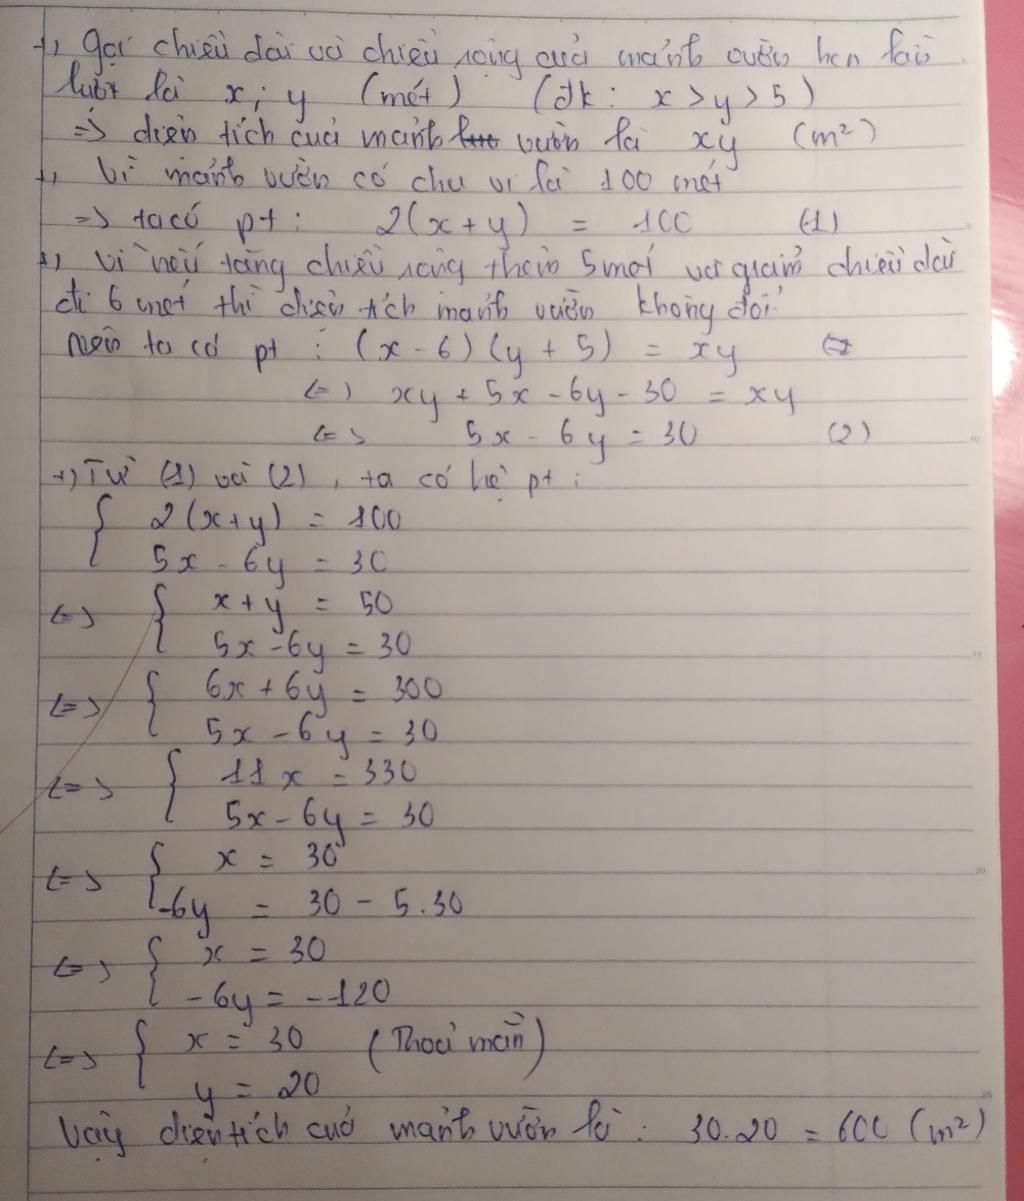 +, Gọi chiều dài và chiều rộng của mảnh vườn hcn lần
lượt là x; y (mét) (đk: x > y > 5)
=> diện tích của mảnh vườn là xy (m²)
+, Vì mảnh vườn có chu vi là 100 mét
=> ta có pt: 2(x+y) = 100 (1)
+, Vì nếu tăng chiều rộng thêm 5 mét và giảm chiều dài
đi 6 mét thì diện tích mảnh vườn không đổi
nên ta có pt : (x - 6) (y + 5) = xy
<=> xy + 5x - 6y - 30 = xy
<=> 5x - 6y = 30 (2)
+) Từ (1) và (2), ta có hệ pt:
{ 2(x+y) = 100
5x - 6y = 30
<=> { x + y = 50
5x - 6y = 30
<=> { 6x + 6y = 300
5x - 6y = 30
<=> { 11x = 330
5x - 6y = 30
<=> { x = 30
-6y = 30 - 5.30
<=> { x = 30
-6y = -120
<=> { x = 30 (Thoả mãn)
y = 20
Vậy diện tích của mảnh vườn là : 30.20 = 600 (m²)